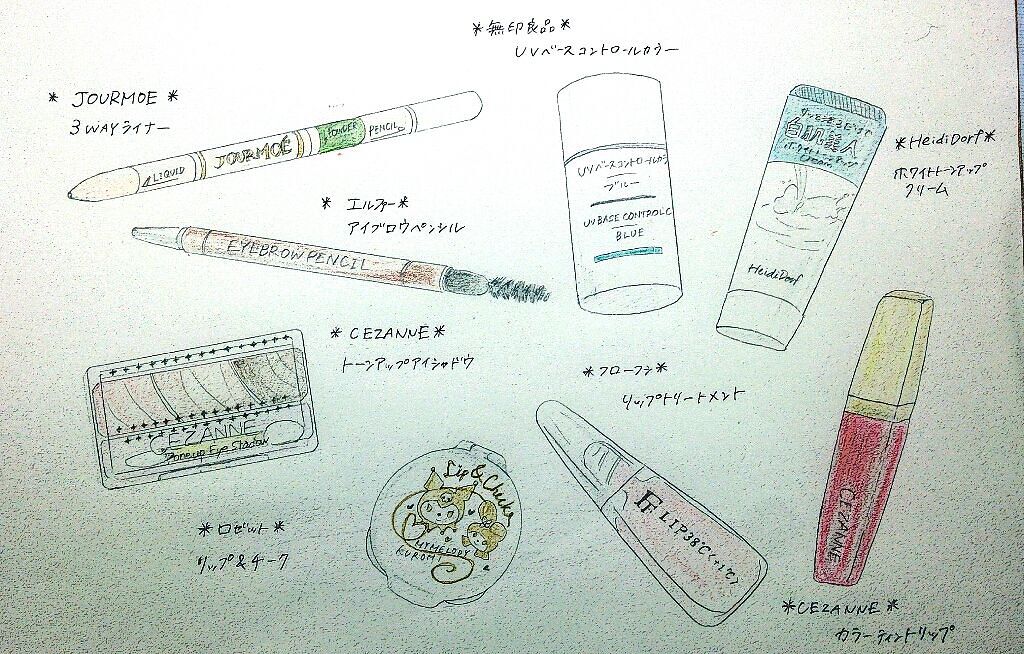 *無印良品*
UVベースコントロールカラー
* JOURMOE *
3WAYライナー
LIQUID
JOURMOE
POWDER
PENCIL
UVベースコントロールカラ
ブルー
UV BASE CONTROL C
BLUE
白肌美人
ホワイトトーンアップ
Cream
HeidiDorf
*HeidiDorf*
ホワイトトーンアップ
クリーム
* エルファー*
アイブロウペンシル
EYEBROW PENCIL
* CEZANNE *
トーンアップアイシャドウ
CEZANNE
Tone up Eye Shadow
*フローフシ*
リップトリートメント
LIP38℃(+1℃)
*ロゼット*
リップ&チーク
Lip & Cheek
MYMELODY
KUROMI
CEZANNE
*CEZANNE *
カラーティントリップ